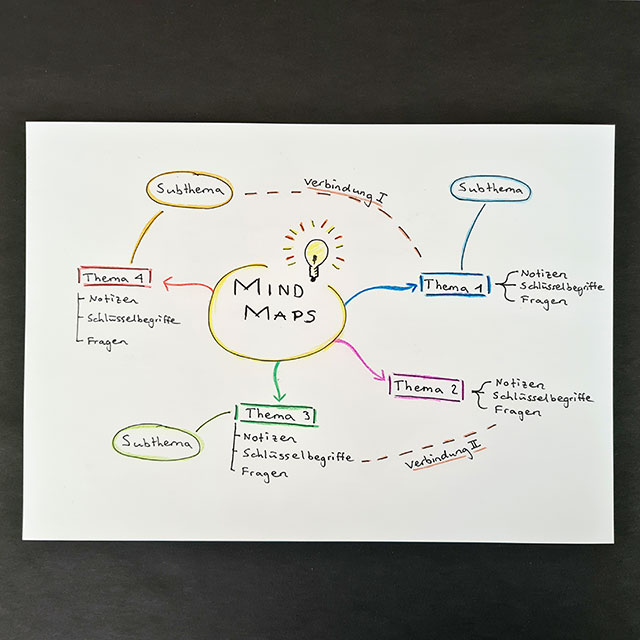 Subthema
Verbindung I
Subthema
Thema 4
Notizen
Schlüsselbegriffe
Fragen
MIND
MAPS
Thema 1
Notizen
Schlüsselbegriffe
Fragen
Thema 2
Notizen
Schlüsselbegriffe
Fragen
Thema 3
Notizen
Schlüsselbegriffe
Fragen
Subthema
Verbindung II